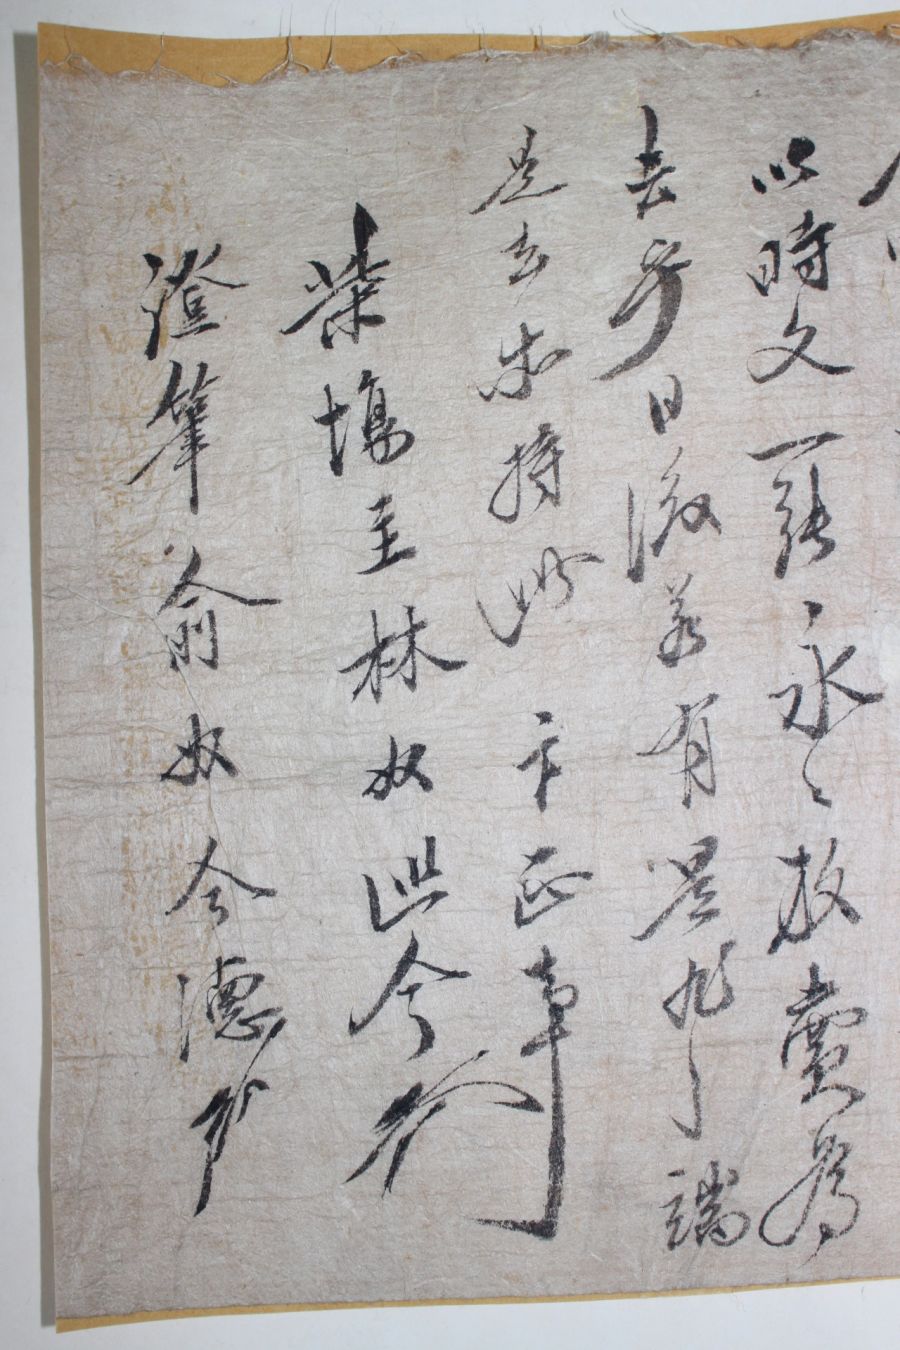 以時文一張永〻放賣爲
去乎日後若有是非之端
是去等持此文卞正事
柴場主林奴 今
證筆兪奴今德